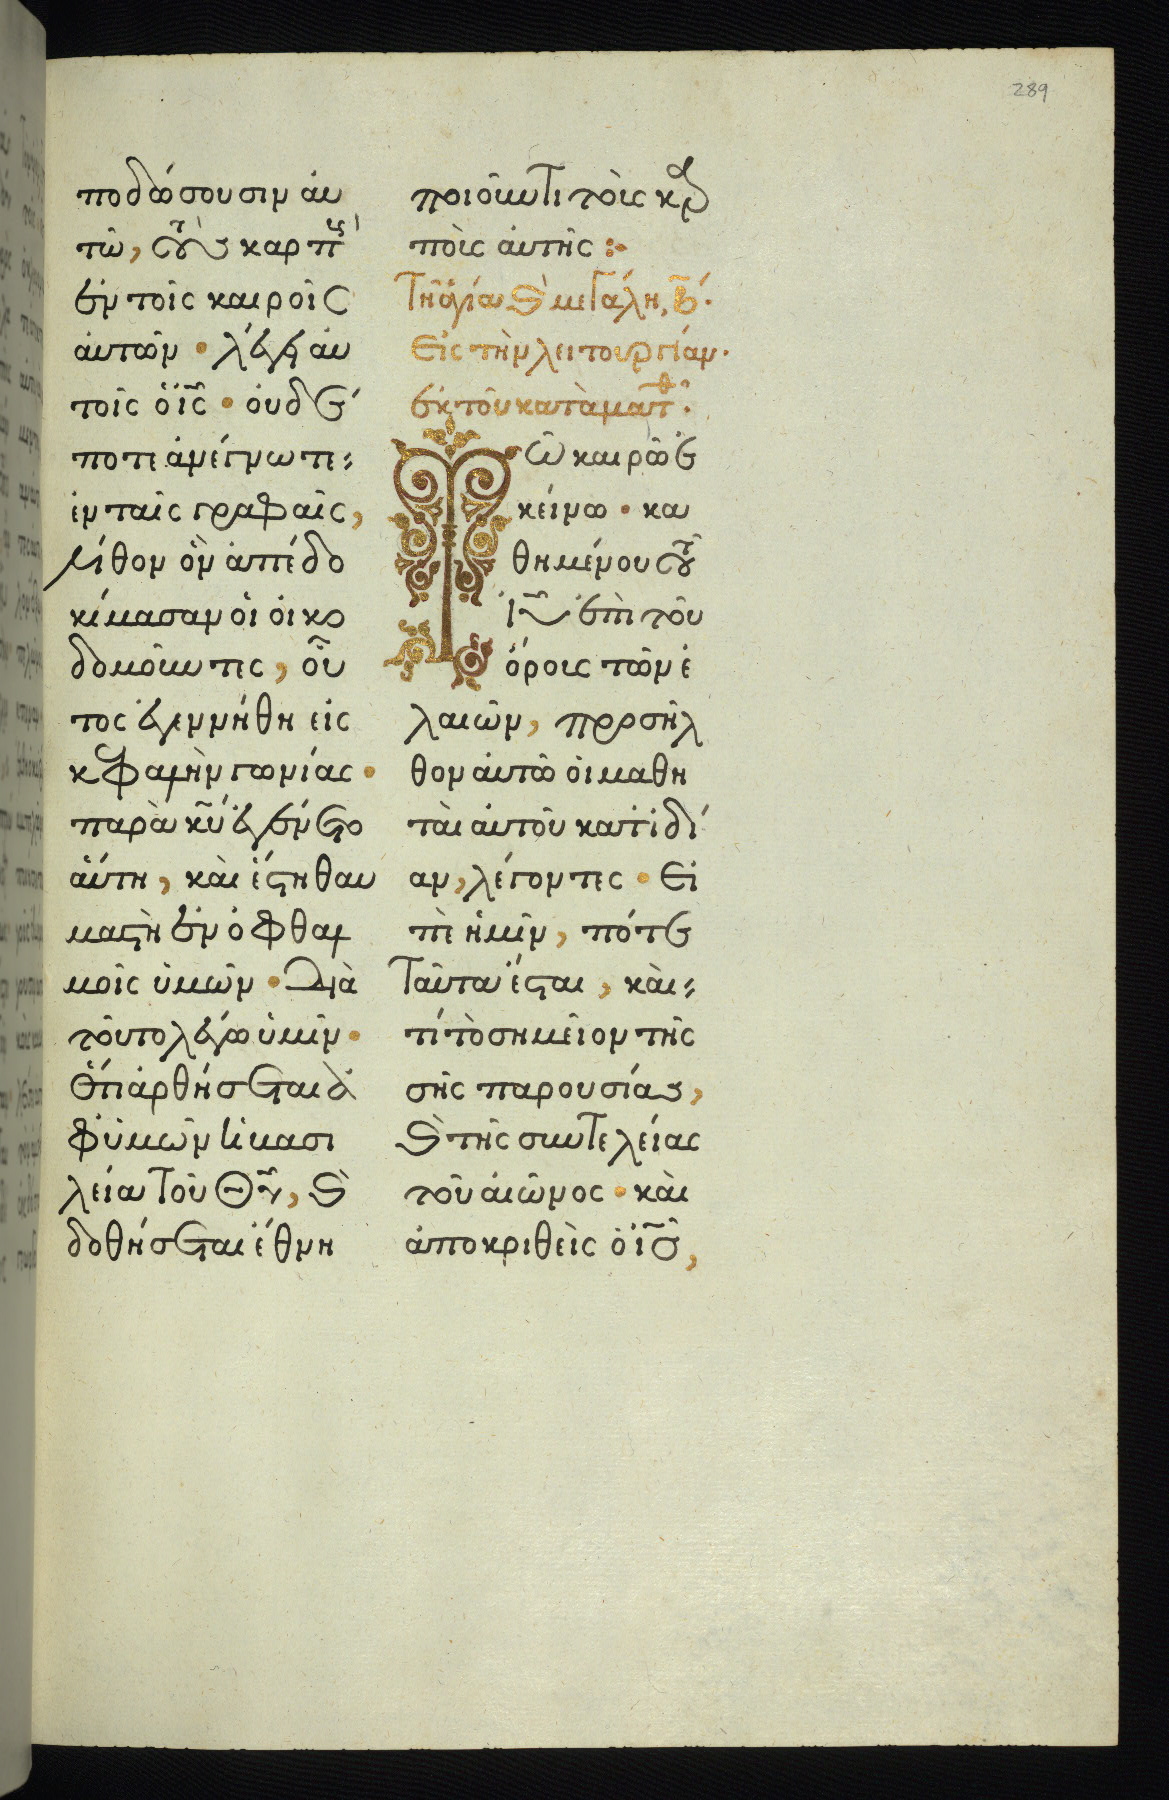 289
ποδώσουσιν ἀυ
τῶ, τοὺς καρπ
ἐν τοῖς καιροῖς
ἀυτῶν · λέγει ἀυ
τοῖς ὁ ἰς · ὀυδέ
ποτε ἀνέγνωτε
ἐν ταῖς γραφαῖς,
λίθον ὃν ἀπέδο
κίμασαν ὁι ὀικο
δομοῦντες, οὗ
τος ἐγεννήθη εἰς
κεφαλὴν γωνίας ·
παρὰ κυ ἐγένετο
ἁύτη, καὶ ἔστι θαυ
μαστὴ ἐν ὀφθαλ
μοῖς ὑμῶν · Διὰ
τοῦτο λέγω ὑμῖν ·
Ὅτι ἀρθήσεται ἀ
φ ὑμῶν ἡ βασι
λεία τοῦ Θυ, καὶ
δοθήσεται ἔθνη
ποιοῦντι τοὺς καρ
ποὺς ἀυτῆς :·
Τῆ ἁγία καὶ μεγάλη, β ·
Εἰς τὴν λειτουργίαν ·
ἐκ τοῦ κατὰ ματθ ·
Τῶ καιρῶ ἐ
κείνω · κα
θημένου τοῦ
ἰυ ἐπὶ τοῦ
ὄρους τῶν ἐ
λαιῶν, προσῆλ
θον ἀυτῶ ὁι μαθη
ταὶ ἀυτοῦ κατ ἰδί
αν, λέγοντες · Εἰ
πὲ ἡμῖν, πότε
ταῦτα ἔσται, καὶ
τί τὸ σημεῖον τῆς
σῆς παρουσίας,
καὶ τῆς συντελείας
τοῦ ἀιῶνος · καὶ
ἀποκριθεὶς ὁ ἰς,